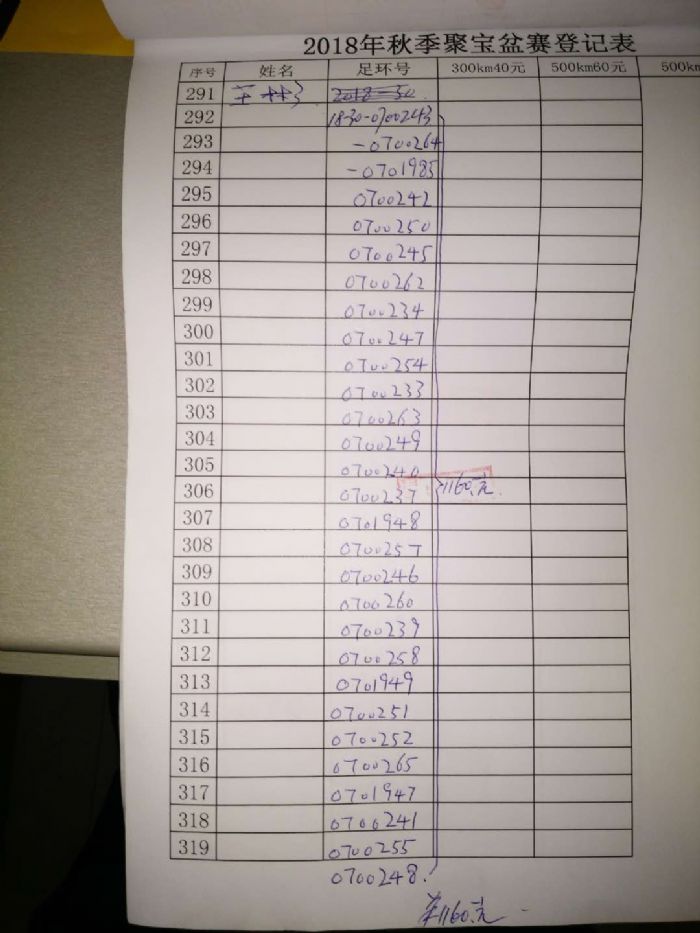 2018年秋季聚宝盆赛登记表
序号 姓名 足环号 300km40元 500km60元 500km
291 王林 2018-30
292 1830-0700243
293 -0700264
294 -0701985
295 0700242
296 0700250
297 0700245
298 0700262
299 0700234
300 0700247
301 0700254
302 0700233
303 0700263
304 0700249
305 0700240
306 0700237 1160元
307 0701948
308 0700257
309 0700246
310 0700260
311 0700239
312 0700258
313 0701949
314 0700251
315 0700252
316 0700265
317 0701947
318 0700241
319 0700255
0700248
1160元